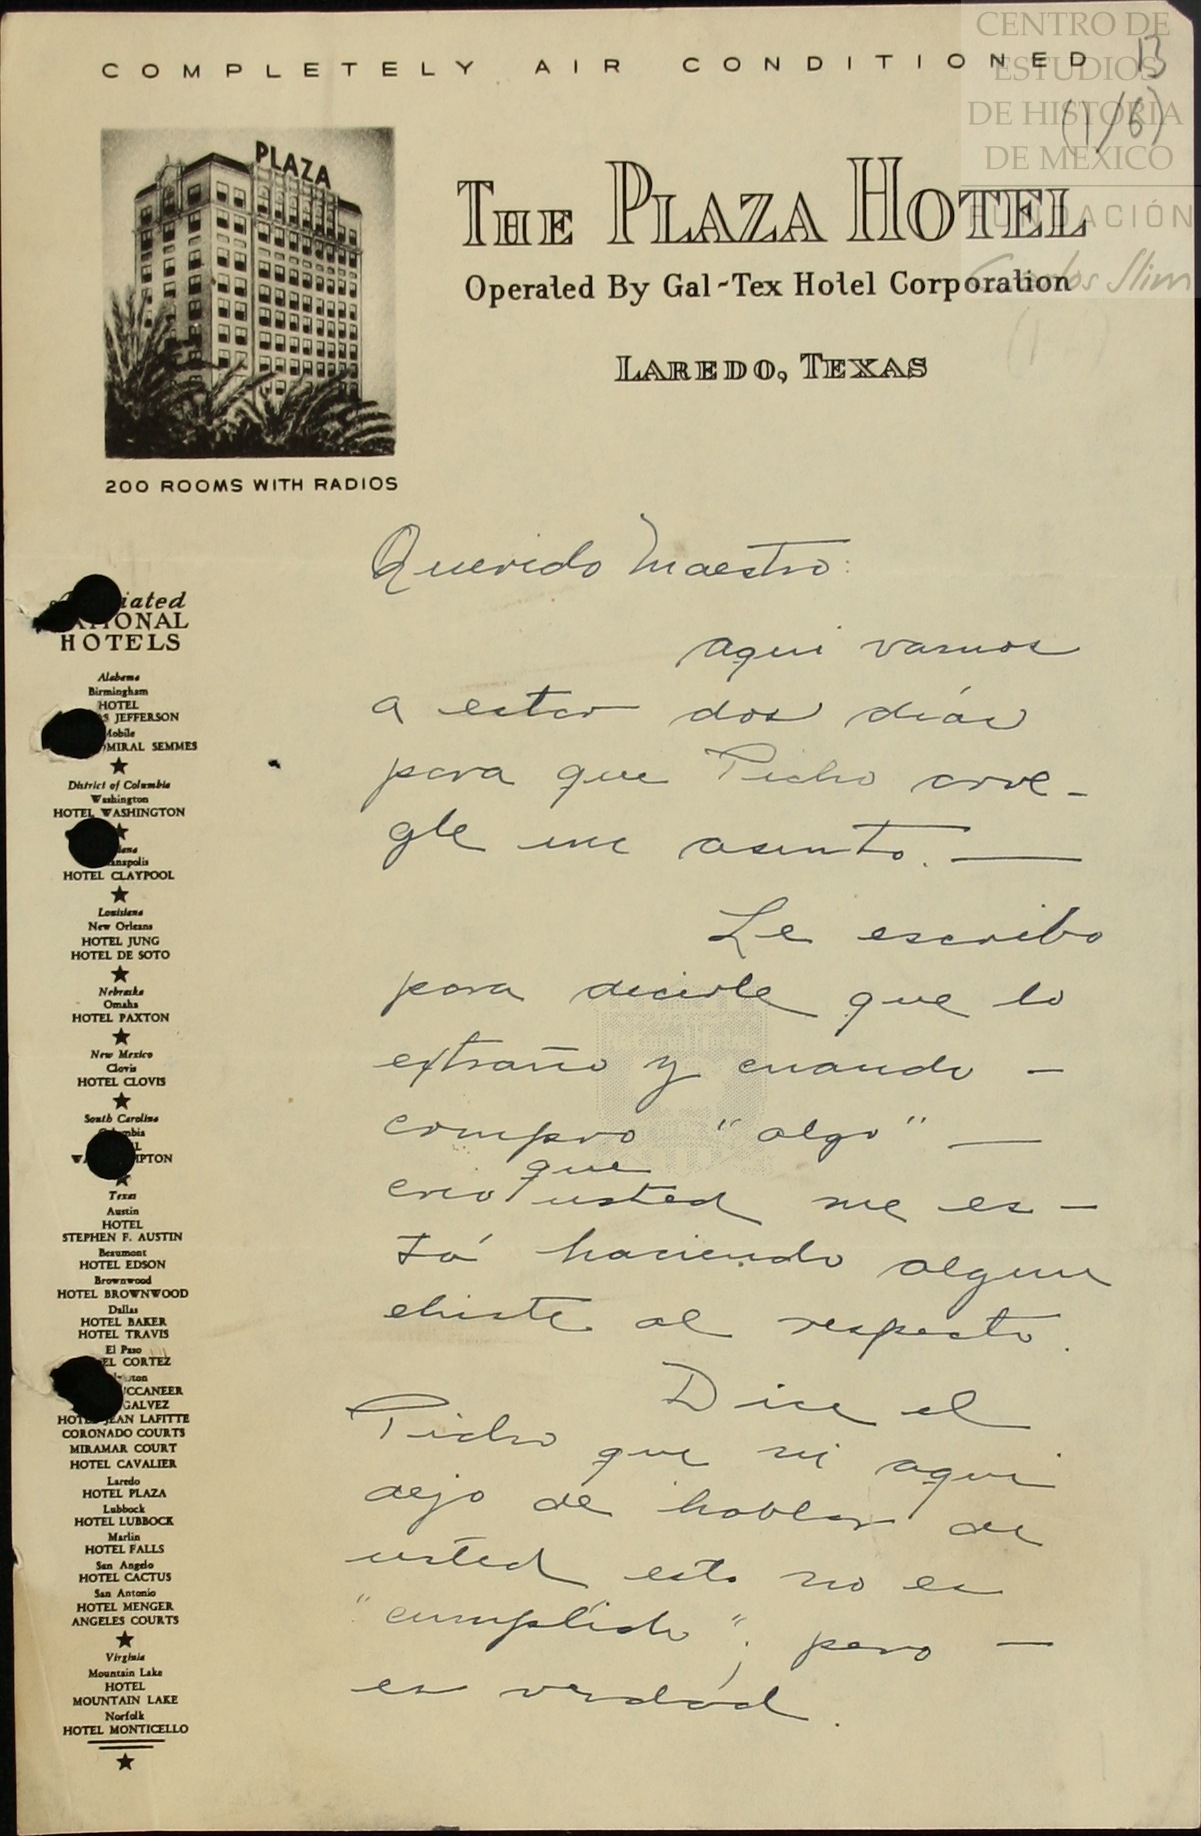 COMPLETELY AIR CONDITIONED
CENTRO DE
ESTUDIOS
DE HISTORIA
DE MEXICO
FUNDACIÓN
Carlos Slim
13
(1/6)
PLAZA
THE PLAZA HOTEL
Operated By Gal-Tex Hotel Corporation
LAREDO, TEXAS
200 ROOMS WITH RADIOS
Querido Maestro:
aqui vamos
a estar dos días
para que Picho arre-
gle un asunto. —
Le escribo
para decirle que lo
extraño y cuando —
compro "algo" —
creo que usted me es-
tá haciendo algun
chiste al respecto.
Dice el
Picho que ni aqui
dejo de hablar de
usted esto no es
"cumplido"; pero —
es verdad.
NATIONAL
HOTELS
Alabama
Birmingham
HOTEL
JEFFERSON
Mobile
ADMIRAL SEMMES
District of Columbia
Washington
HOTEL WASHINGTON
HOTEL CLAYPOOL
Louisiana
New Orleans
HOTEL JUNG
HOTEL DE SOTO
Nebraska
Omaha
HOTEL PAXTON
New Mexico
Clovis
HOTEL CLOVIS
South Carolina
Texas
Austin
HOTEL
STEPHEN F. AUSTIN
Beaumont
HOTEL EDSON
Brownwood
HOTEL BROWNWOOD
Dallas
HOTEL BAKER
HOTEL TRAVIS
El Paso
CORTEZ
GALVEZ
HOTEL JEAN LAFITTE
CORONADO COURTS
MIRAMAR COURT
HOTEL CAVALIER
Laredo
HOTEL PLAZA
Lubbock
HOTEL LUBBOCK
Marlin
HOTEL FALLS
San Angelo
HOTEL CACTUS
San Antonio
HOTEL MENGER
ANGELES COURTS
Virginia
Mountain Lake
HOTEL
MOUNTAIN LAKE
Norfolk
HOTEL MONTICELLO